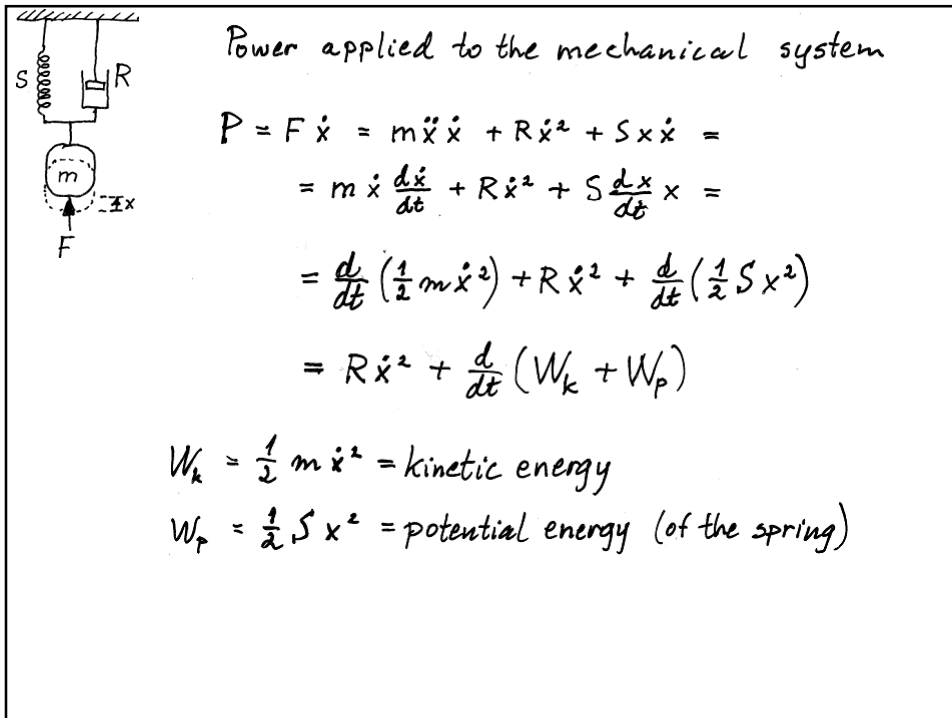 Power applied to the mechanical system
S R
m
x
F
P = F ẋ = m ẍ ẋ + R ẋ² + S x ẋ =
= m ẋ dẋ/dt + R ẋ² + S dx/dt x =
= d/dt (1/2 m ẋ²) + R ẋ² + d/dt (1/2 S x²)
= R ẋ² + d/dt (Wₖ + Wₚ)
Wₖ = 1/2 m ẋ² = kinetic energy
Wₚ = 1/2 S x² = potential energy (of the spring)